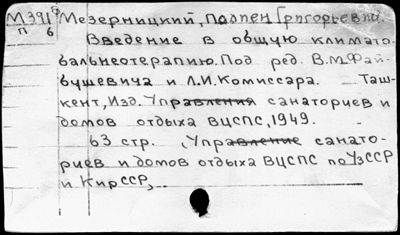 М391 Мезерницкий, Полиен Григорьевич.
П б Введение в общую климато-
бальнеотерапию. Под ред. В.М.Фай-
бушевича и Л.И.Комиссара. Таш-
кент, Изд. Управления санаториев и
домов отдыха ВЦСПС, 1949.
63 стр. (Управление санато-
риев и домов отдыха ВЦСПС по УзССР
и КирССР)